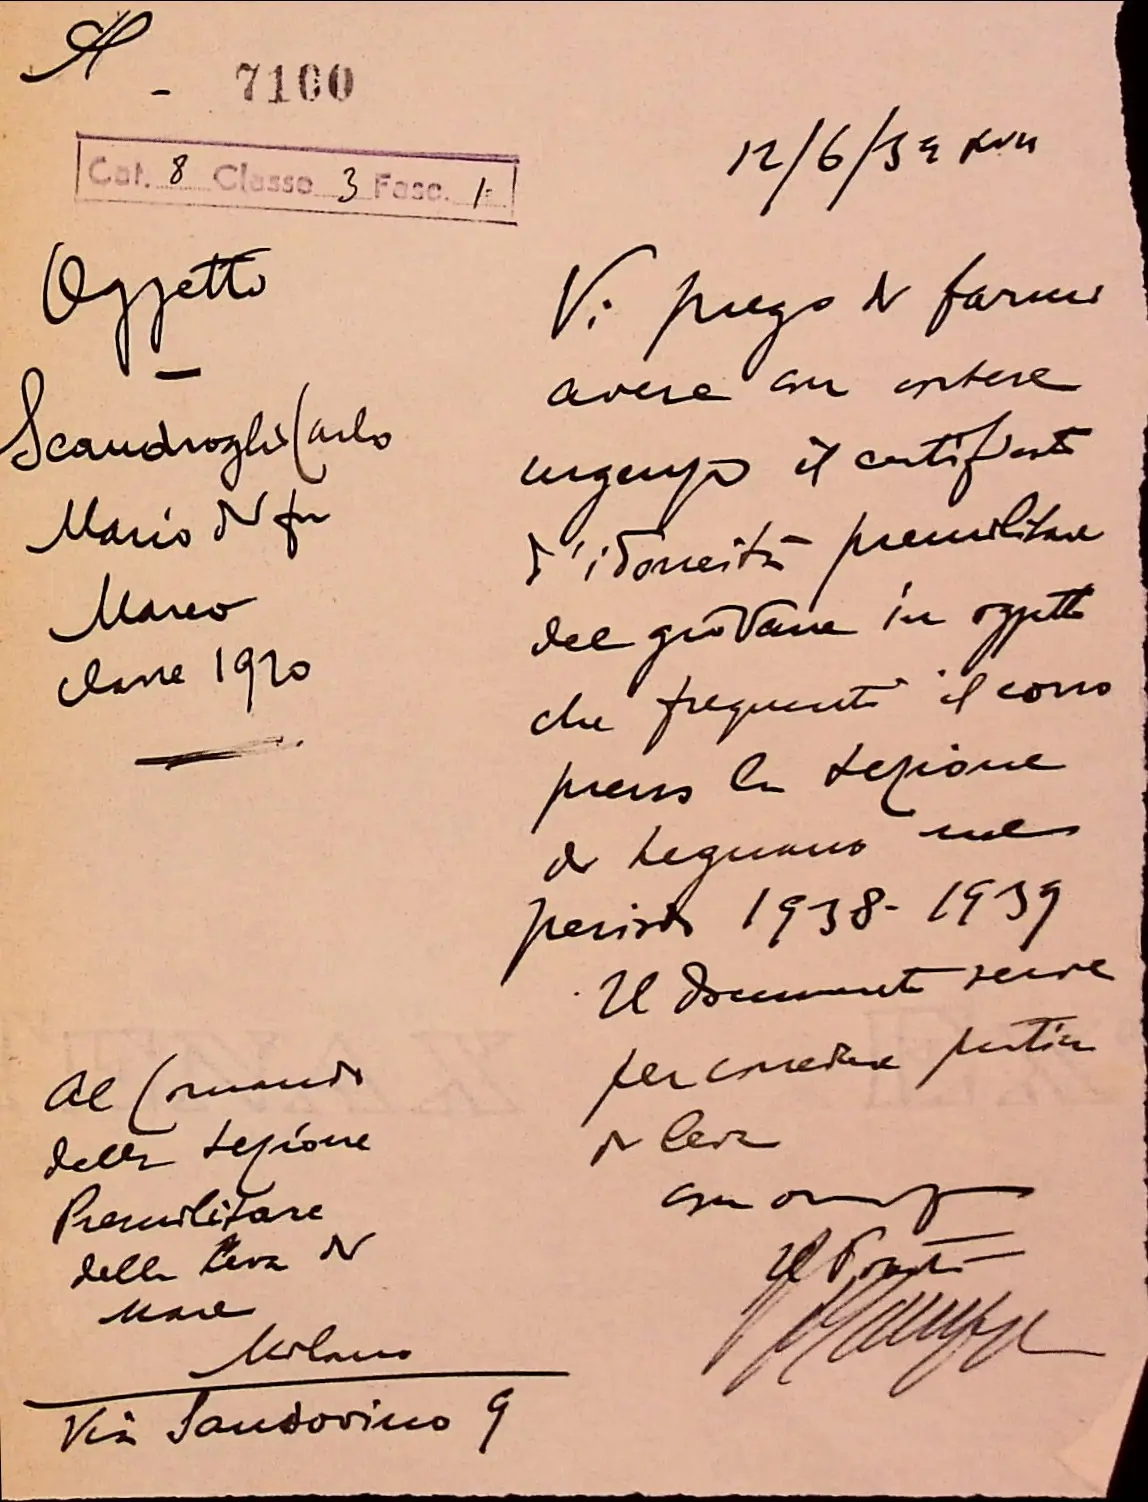 A
- 7100
Cat. 8 Classe 3 Fasc. 1
12/6/39 XVII
Oggetto
-
Scandroglio Carlo
Mario di fu
Marco
classe 1920
Vi prego di farmi
avere con cortese
urgenza il certificato
d'idoneità premilitare
del giovane in oggetto
che frequentò il corso
presso la sezione
di Legnano nel
periodo 1938-1939
Il documento serve
per
di leva
con
Il Podestà
Al Comando
della sezione
Premilitare
della Leva di
mare
Milano
Via Sansovino 9